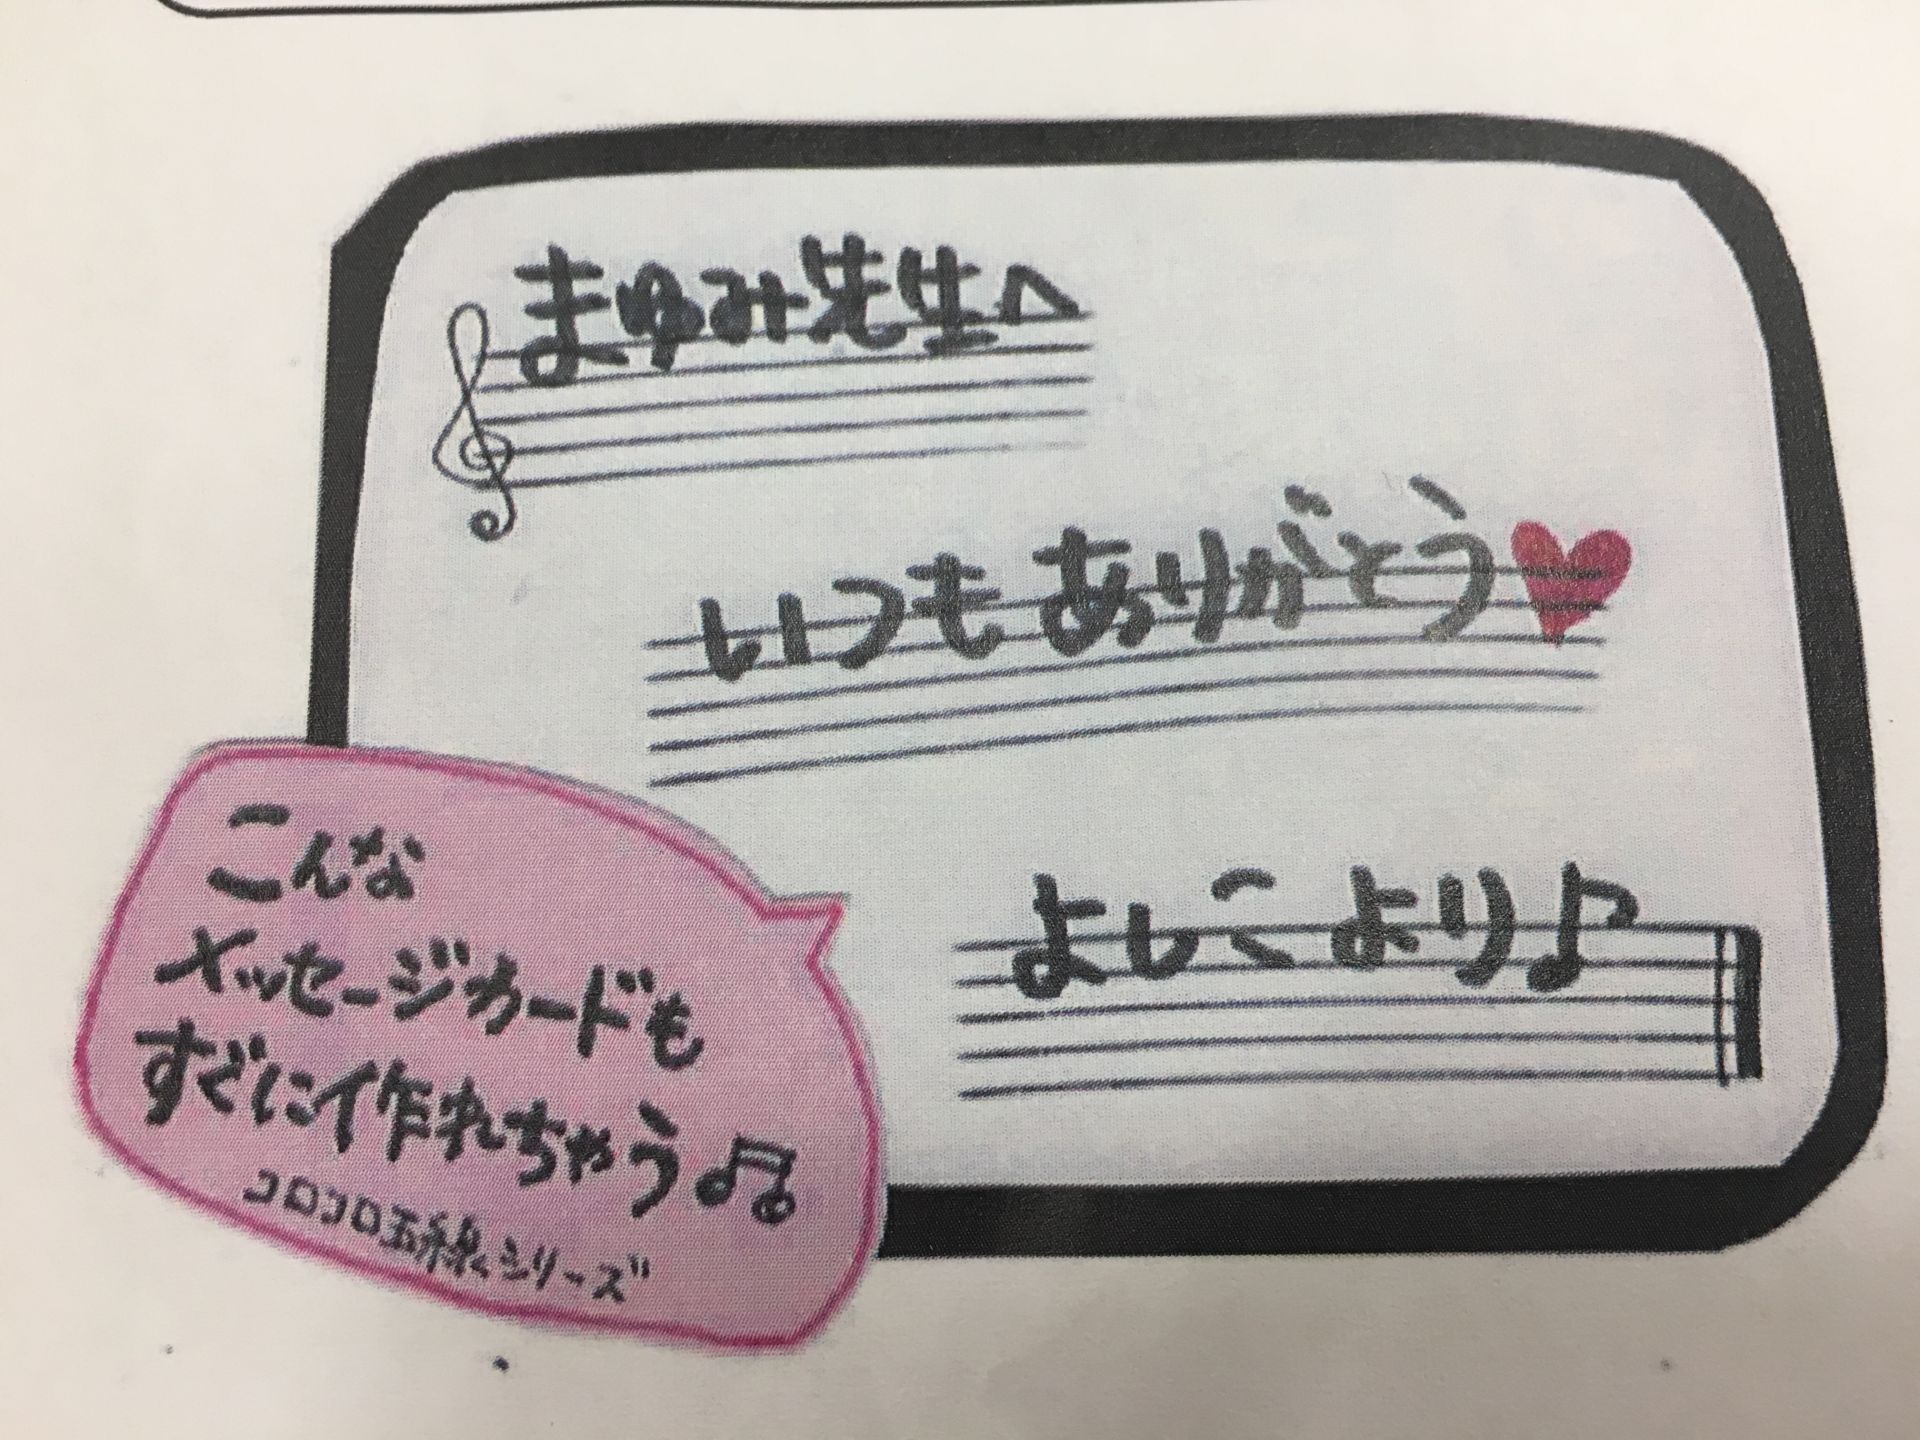 まゆみ先生へ
いつもありがとう♥
よしこより♪
こんな
メッセージカードも
すぐに作れちゃう♫
コロコロ五線シリーズ